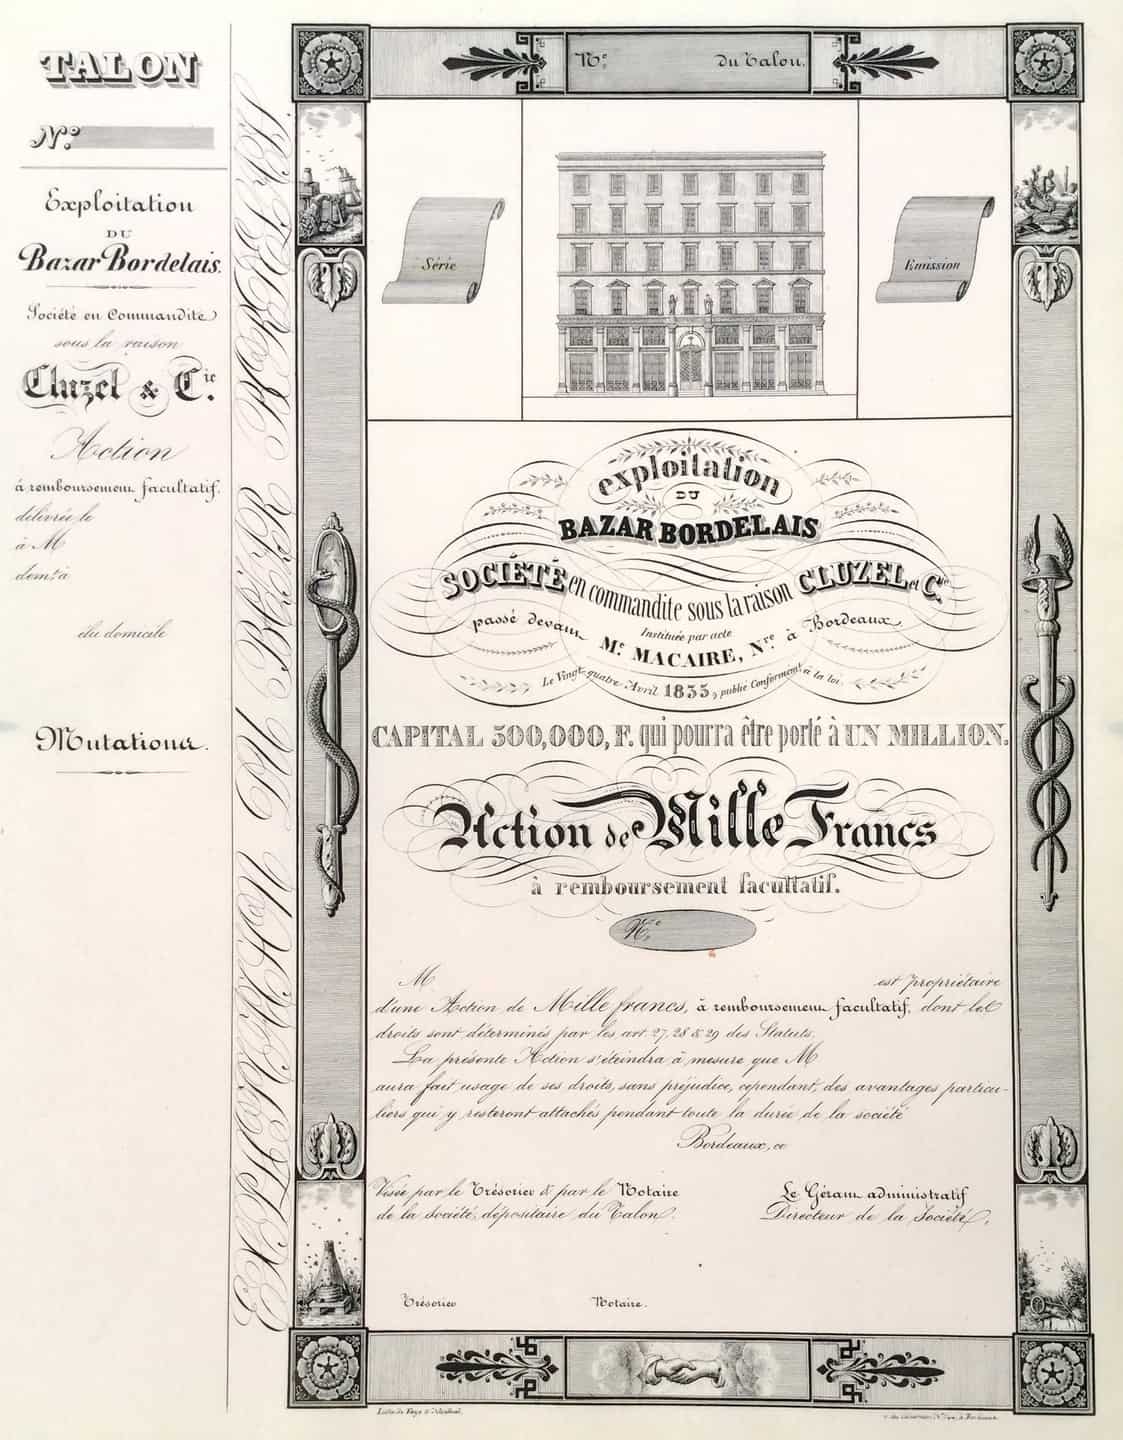 TALON
N.º
Exploitation
DU
Bazar Bordelais.
Société en Commandite
sous la raison
Cluzel & Cie.
Action
à remboursement facultatif.
délivrée le
à M
demt. à
élu domicile
Mutations.
EXPLOITATION DU BAZAR BORDELAIS.
No. du Talon.
Série
Emission
exploitation
DU
BAZAR BORDELAIS
SOCIÉTÉ en commandite sous la raison CLUZEL et Cie.
Instituée par acte
passé devant Me. MACAIRE, Nre. à Bordeaux,
Le Vingt-quatre Avril 1835, publié Conforment. à la loi.
CAPITAL 500,000, F. qui pourra être porté à UN MILLION.
Action de Mille Francs
à remboursement facultatif.
M est propriétaire
d'une Action de Mille francs, à remboursement facultatif, dont les
droits sont déterminés par les art. 27, 28 & 29 des Statuts.
La présente Action s'éteindra à mesure que M
aura fait usage de ses droits, sans préjudice, cependant, des avantages particu-
liers qui y resteront attachés pendant toute la durée de la société
Bordeaux, ce
Visée par le Trésorier & par le Notaire
de la Société, dépositaire du Talon.
Le Gérant administratif
Directeur de la Société,
Trésorier
Notaire.
Litho de Faye
à Bordeaux